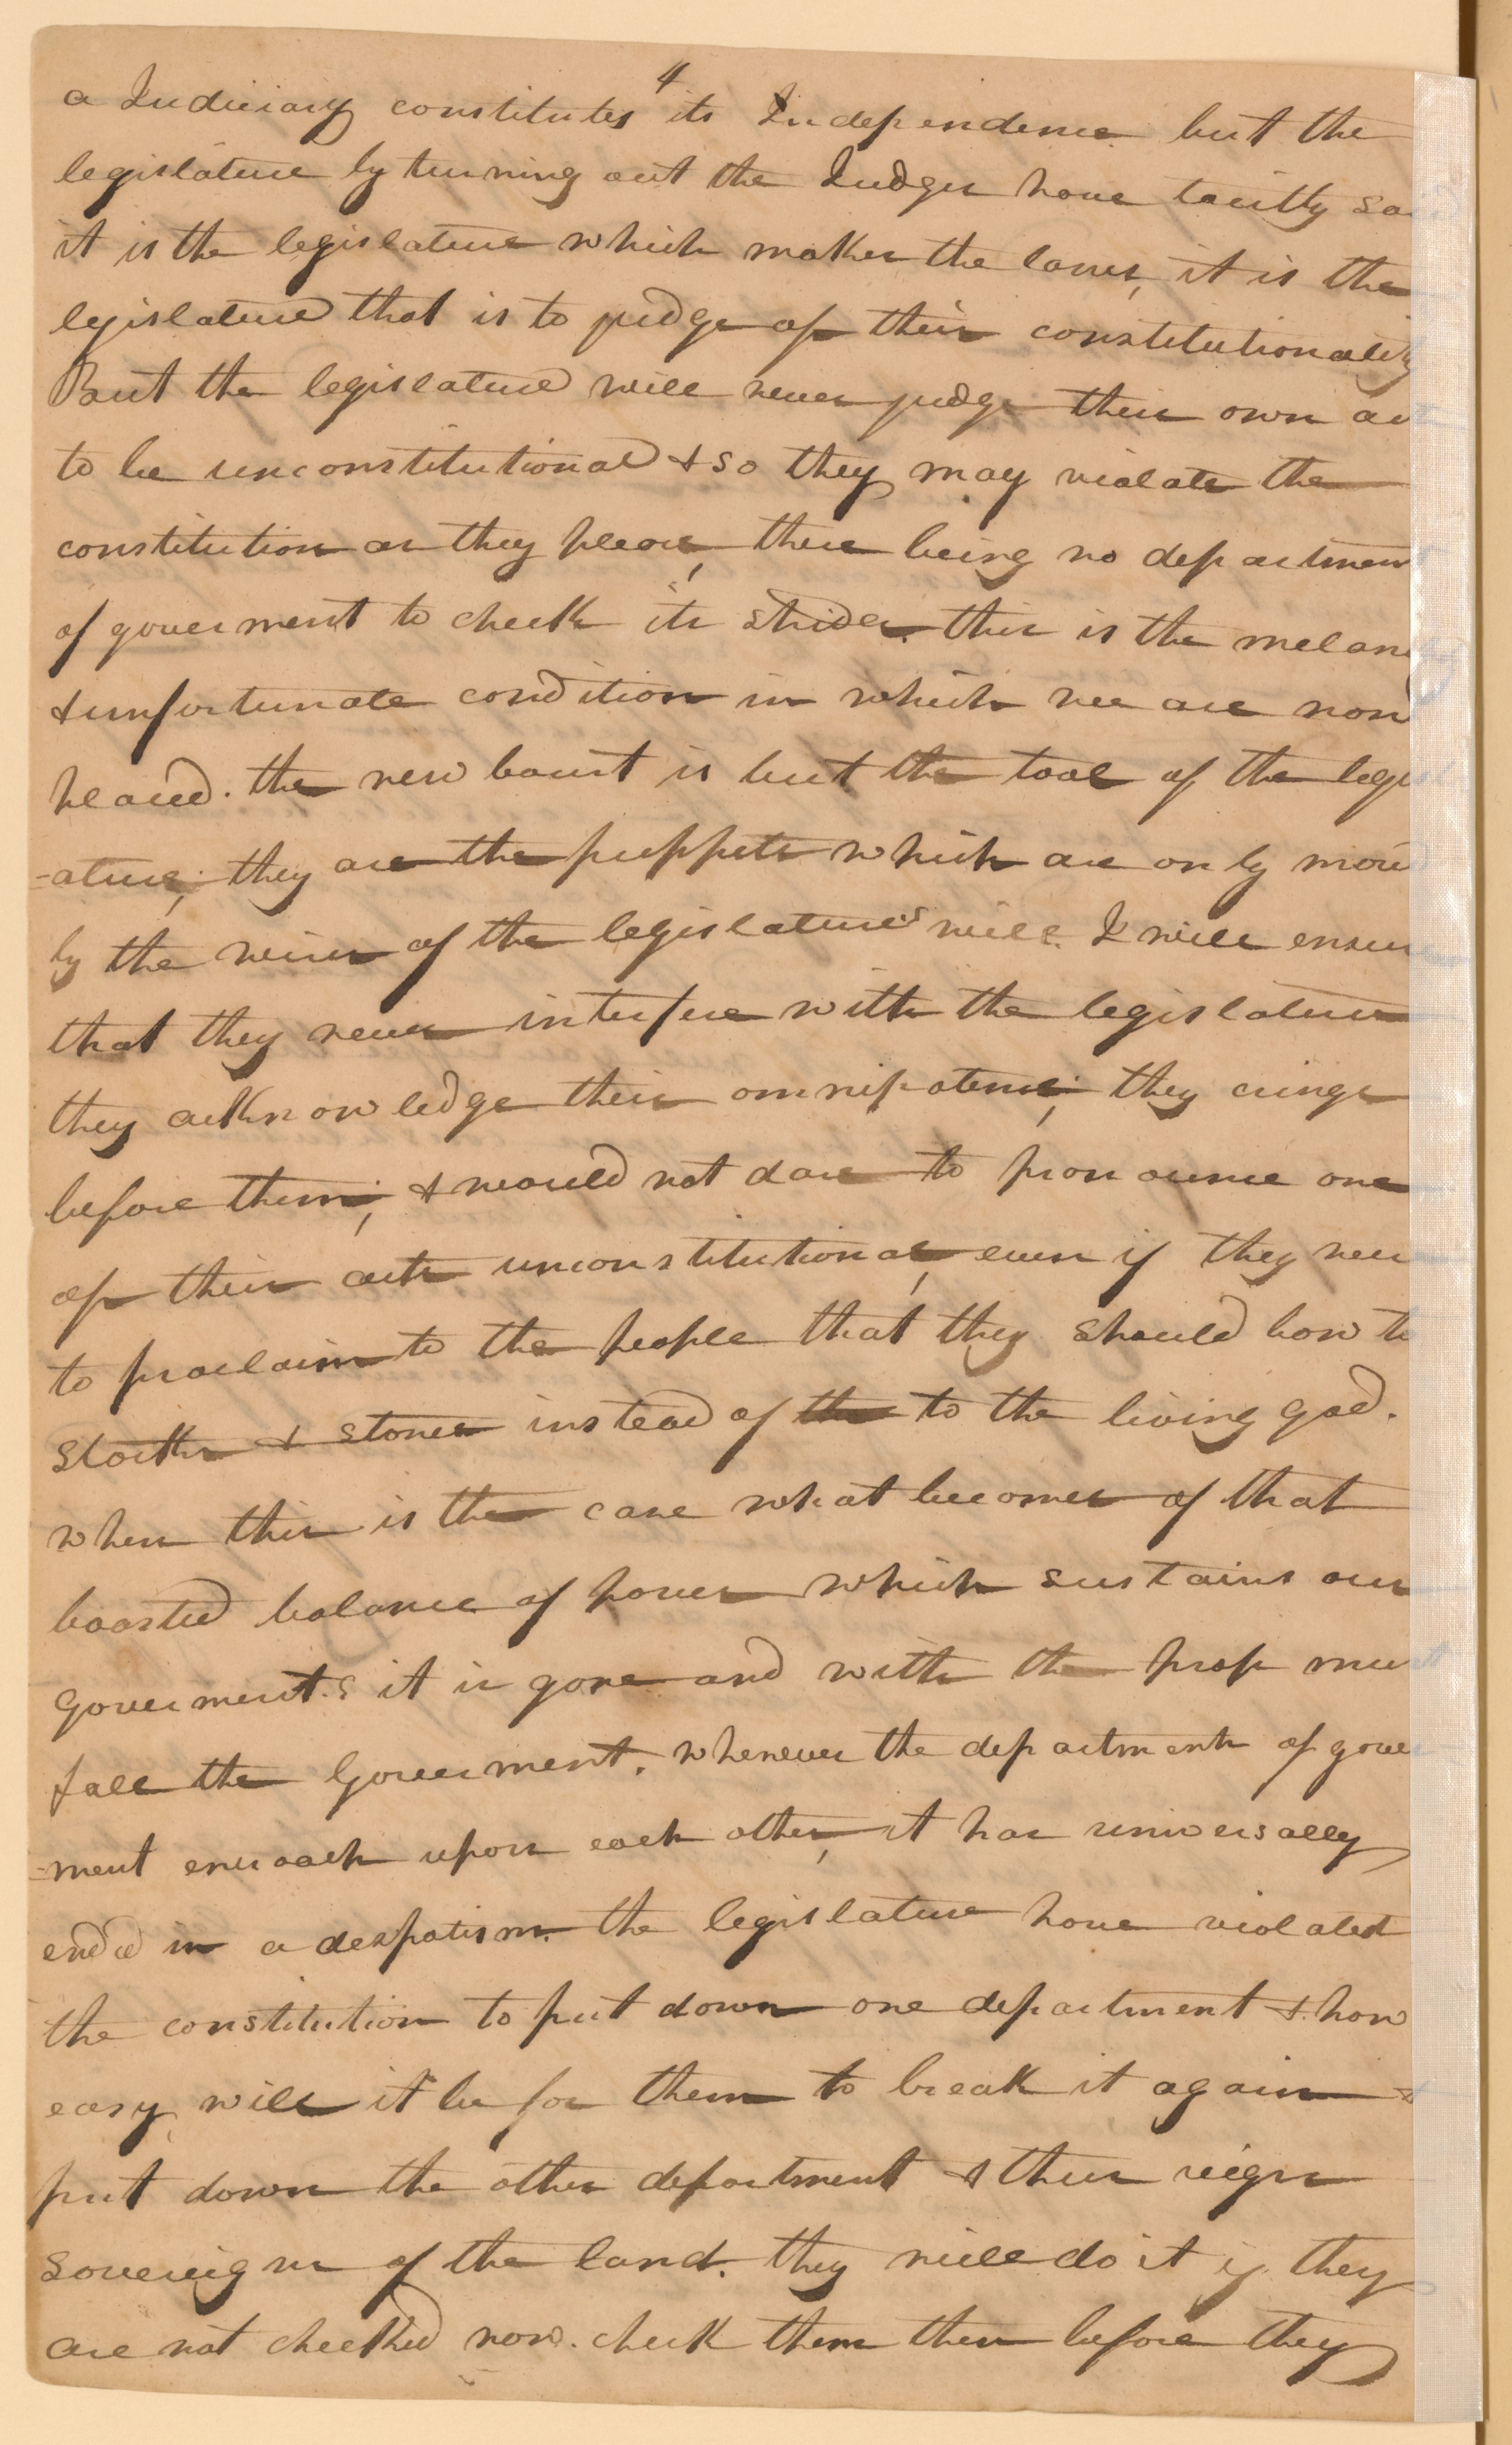 4
a Judiciary constitutes its Independence but the
legislature by turning out the Judges have tacitly sa
it is the legislature which makes the laws, it is the
legislature that is to judge of their constitutionality
But the legislature will never judge their own act
to be unconstitutional & so they may violate the
constitution as they please, there being no departmen
of goverment to check its strides. this is the melanc
& unfortunate condition in which we are now
placed. the new court is but the tool of the legis
-ature; they are the puppets which are only move
by the wires of the legislature's will. I will ensure
that they never interfere with the legislature
they acknowledge their omnipotence; they cringe
before them; & would not dare to pronounce one
of their acts unconstitutional, even if they were
to proclaim to the people that they should bow to
stocks & stones instead of the to the living god.
when this is the case what becomes of that
boasted balance of power which sustains our
goverment.s it is gone and with the prop must
fall the Goverment. whenever the departments of gover
-ment encroach upon each other, it has universally
ended in a despotism. the legislature have violated
the constitution to put down one department & how
easy will it be for them to break it again &
put down the other department & then reign
sovereigns of the land. they will do it if they
are not checked now. check them then before they